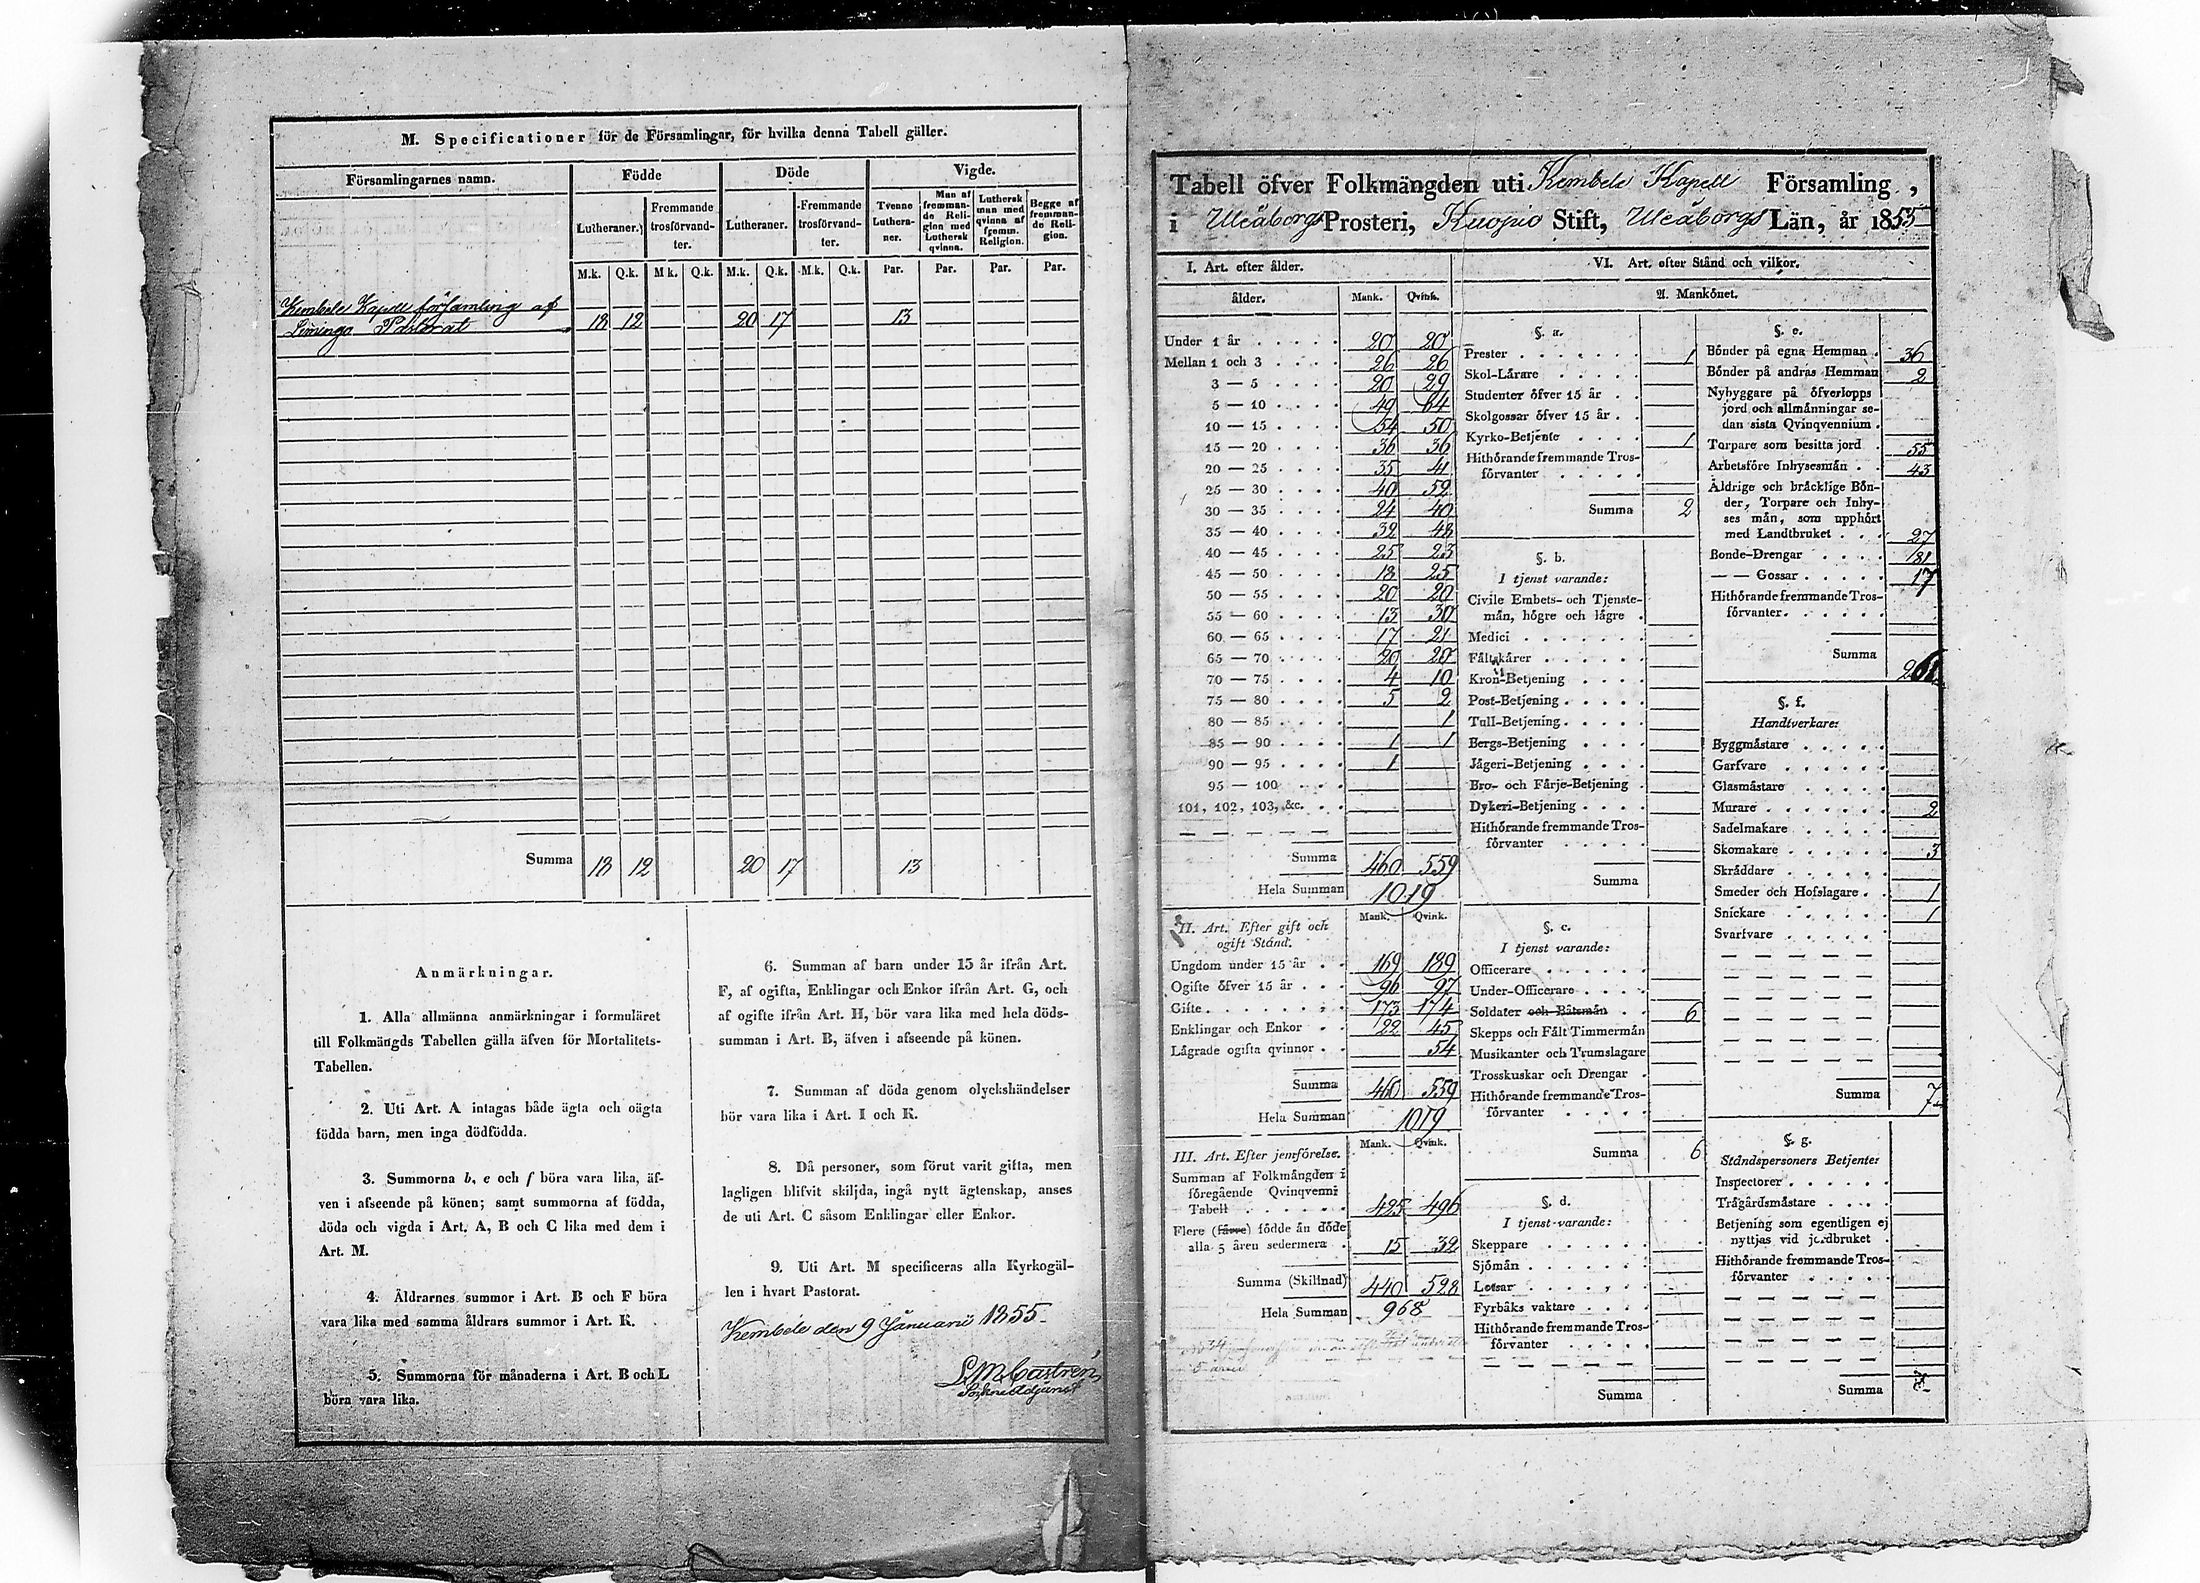 M. Specificationer för de Församlingar, för hvilka denna Tabell gäller.
Församlingarnes namn. Födde Döde Vigde.
Lutheraner. Fremmande trosförvandter. Lutheraner. Fremmande trosförvandter. Tvenne Lutheraner. Man af fremmande Religion med Luthersk qvinna. Luthersk man med qvinna af fremm. Religion. Begge af fremmande Religion.
M.k. Q.k. M.k. Q.k. M.k. Q.k. M.k. Q.k. Par. Par. Par. Par.
Kembele Kapell församling af
Limingo Pastorat 18 12 20 17 13
Summa 18 12 20 17 13
Anmärkningar.
1. Alla allmänna anmärkningar i formuläret
till Folkmängds Tabellen gälla äfven för Mortalitets-
Tabellen.
2. Uti Art. A intagas både ägta och oägta
födda barn, men inga dödfödda.
3. Summorna b, e och f böra vara lika, äf-
ven i afseende på könen; samt summorna af födda,
döda och vigda i Art. A, B och C lika med dem i
Art. M.
4. Äldrarnes summor i Art. B och F böra
vara lika med samma åldrars summor i Art. K.
5. Summorna för månaderna i Art. B och L
böra vara lika.
6. Summan af barn under 15 år ifrån Art.
F, af ogifta, Enklingar och Enkor ifrån Art. G, och
af ogifte ifrån Art. H, bör vara lika med hela döds-
summan i Art. B, äfven i afseende på könen.
7. Summan af döda genom olyckshändelser
bör vara lika i Art. I och K.
8. Då personer, som förut varit gifta, men
lagligen blifvit skiljda, ingå nytt ägtenskap, anses
de uti Art. C såsom Enklingar eller Enkor.
9. Uti Art. M specificeras alla Kyrkogäl-
len i hvart Pastorat.
Kembele den 9 Januarii 1855.
L M Castrén
Tabell öfver Folkmängden uti Kembele Kapell Församling,
i Uleåborgs Prosteri, Kuopio Stift, Uleåborgs Län, år 1855
I. Art. efter ålder.
ålder. Mank. Qvink.
Under 1 år 20 20
Mellan 1 och 3 26 26
3 — 5 20 29
5 — 10 49 64
10 — 15 54 50
15 — 20 36 36
20 — 25 35 41
25 — 30 40 52
30 — 35 24 40
35 — 40 32 48
40 — 45 25 23
45 — 50 18 25
50 — 55 20 20
55 — 60 13 30
60 — 65 17 21
65 — 70 20 20
70 — 75 4 10
75 — 80 5 2
80 — 85 1
85 — 90 1 1
90 — 95 1
95 — 100
101, 102, 103, &c.
Summa 460 559
Hela Summan 1019
II. Art. Efter gift och
ogift Stånd. Mank. Qvink.
Ungdom under 15 år 169 189
Ogifte öfver 15 år 96 97
Gifte 173 174
Enklingar och Enkor 22 45
Lägrade ogifta qvinnor 54
Summa 460 559
Hela Summan 1019
III. Art. Efter jemförelse. Mank. Qvink.
Summan af Folkmängden i
föregående Qvinqvenni
Tabell 425 496
Flere (färre) födde än döde
alla 5 åren sedermera 15 32
Summa (Skillnad) 440 528
Hela Summan 968
VI. Art. efter Stånd och vilkor.
A. Mankönet.
§. a.
Prester 1
Skol-Lärare
Studenter öfver 15 år
Skolgossar öfver 15 år
Kyrko-Betjente 1
Hithörande fremmande Tros-
förvanter
Summa 2
§. b.
I tjenst varande:
Civile Embets- och Tjenste-
män, högre och lägre
Medici
Fältskärer
Kron-Betjening
Post-Betjening
Tull-Betjening
Bergs-Betjening
Jägeri-Betjening
Bro- och Färje-Betjening
Dykeri-Betjening
Hithörande fremmande Tros-
förvanter
Summa
§. c.
I tjenst varande:
Officerare
Under-Officerare
Soldater och Båtsmän 6
Skepps och Fält Timmermän
Musikanter och Trumslagare
Trosskuskar och Drengar
Hithörande fremmande Tros-
förvanter
Summa 6
§. d.
I tjenst varande:
Skeppare
Sjömän
Lotsar
Fyrbåks vaktare
Hithörande fremmande Tros-
förvanter
Summa
§. e.
Bönder på egna Hemman 36
Bönder på andras Hemman 2
Nybyggare på öfverlopps
jord och allmänningar se-
dan sista Qvinqvennium
Torpare som besitta jord 55
Arbetsföre Inhysesmän 43
Äldrige och bräcklige Bön-
der, Torpare och Inhy-
ses män, som upphört
med Landtbruket 27
Bonde-Drengar 81
— — Gossar 17
Hithörande fremmande Tros-
förvanter
Summa 261
§. f.
Handtverkare:
Byggmästare
Garfvare
Glasmästare
Murare 2
Sadelmakare
Skomakare 3
Skräddare
Smeder och Hofslagare 1
Snickare 1
Svarfvare
Summa 7
§. g.
Ståndspersoners Betjente:
Inspectorer
Trägårdsmästare
Betjening som egentligen ej
nyttjas vid jordbruket
Hithörande fremmande Tros-
förvanter
Summa